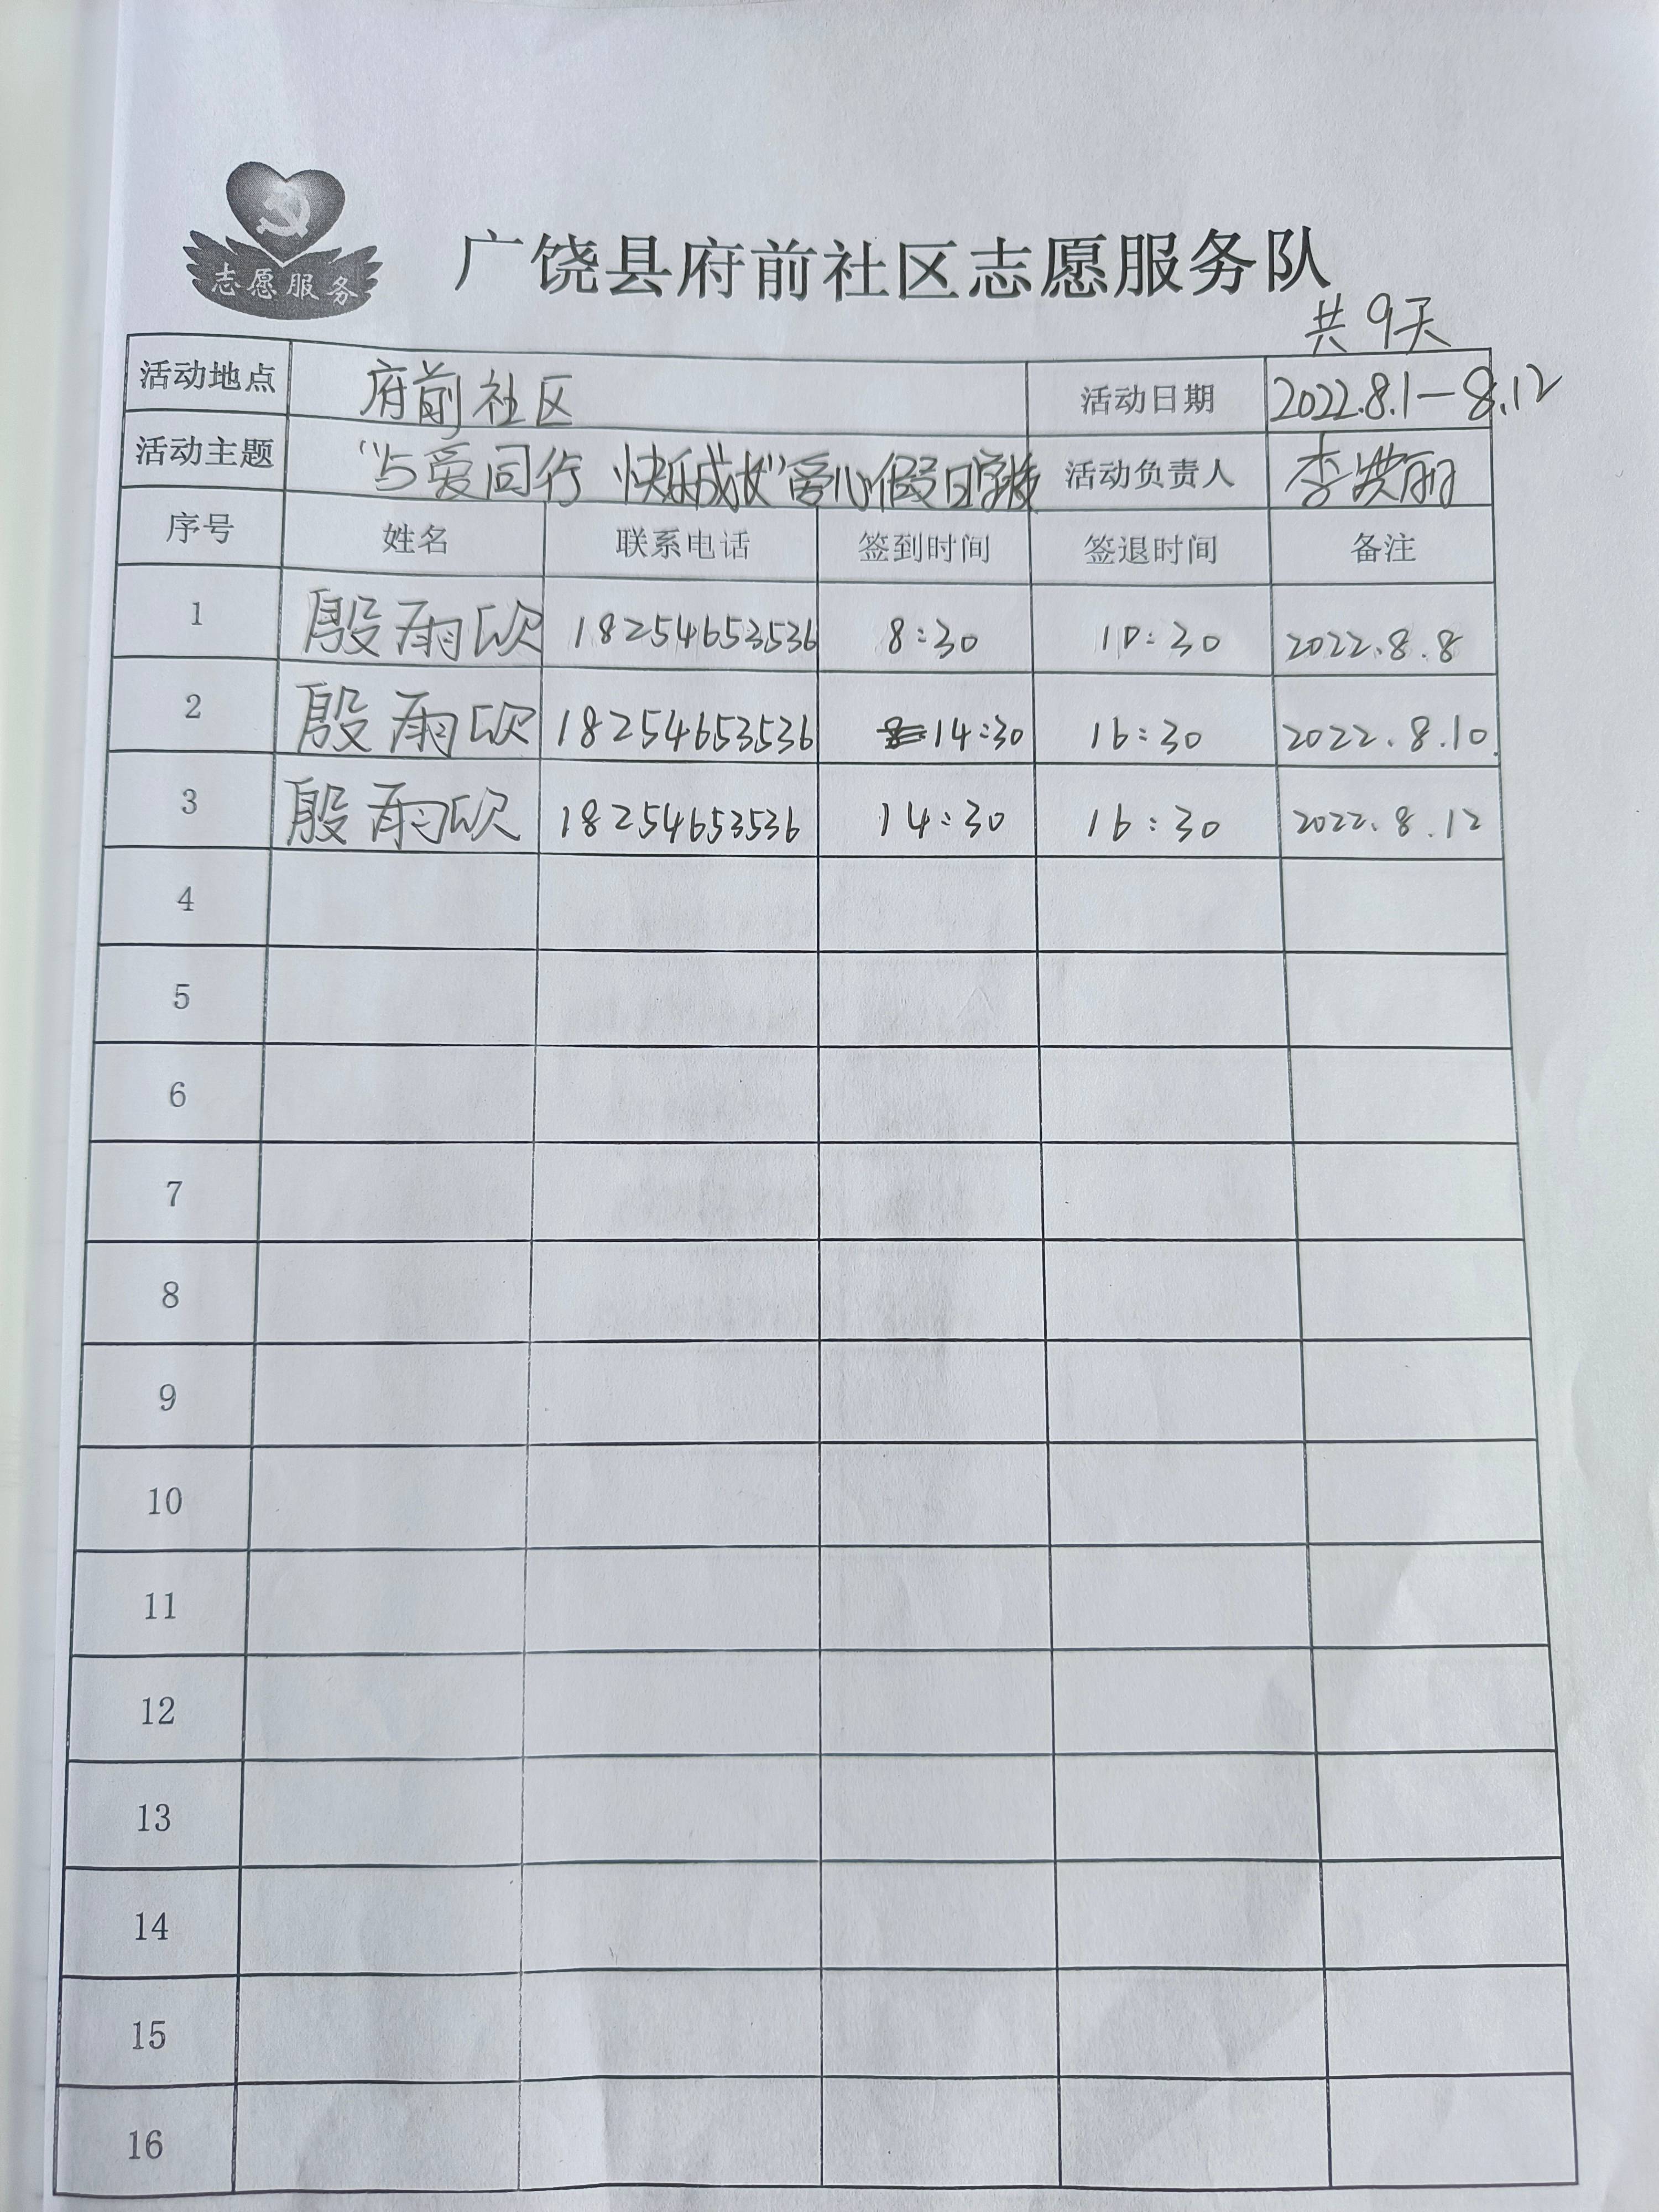 志愿服务
广饶县府前社区志愿服务队
共9天
活动地点 府前社区 活动日期 2022.8.1-8.12
活动主题 "与爱同行 快乐成长"爱心假日学校 活动负责人 李洪丽
序号 姓名 联系电话 签到时间 签退时间 备注
1 殷雨欣 18254653536 8:30 10:30 2022.8.8
2 殷雨欣 18254653536 14:30 16:30 2022.8.10.
3 殷雨欣 18254653536 14:30 16:30 2022.8.12
4
5
6
7
8
9
10
11
12
13
14
15
16